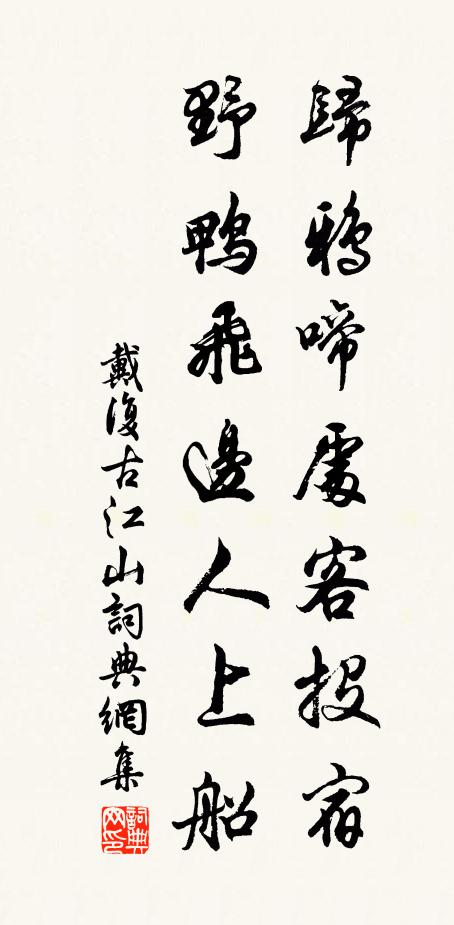 歸鴉啼處客投宿
野鴨飛邊人上船
戴復古江山詞典網集
詞典網印